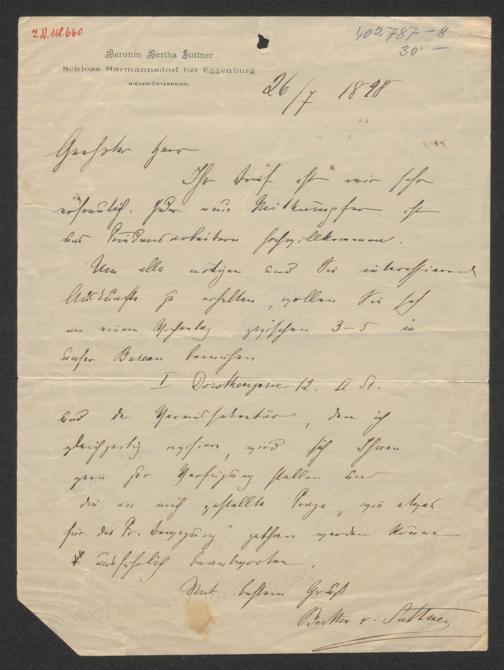 I.N. 112.660
402787-8
30 —
Baronin Bertha Suttner
Schloss Harmannsdorf bei Eggenburg
NIEDER-ÖSTERREICH.
26/7 1898
Geehrter Herr
Ihr Brief ist mir sehr
erfreulich. Jeder neue Mitkämpfer ist
uns Friedensarbeitern hochwillkommen.
Um alle nötigen und Sie interessierende
Auskünfte zu erhalten, wollen Sie sich
an einem Wochentag zwischen 3–5 in
unser Bureau bemühen
I Dorotheergasse 12. II St.
und der Vereinssekretär, den ich
gleichzeitig avisiere, wird sich Ihnen
gern zur Verfügung stellen und
die an mich gestellte Frage „wie etwas
für die Fr. Bewegung" gethan werden könne
ausführlich beantworten.
Mit bestem Gruß
Bertha v. Suttner